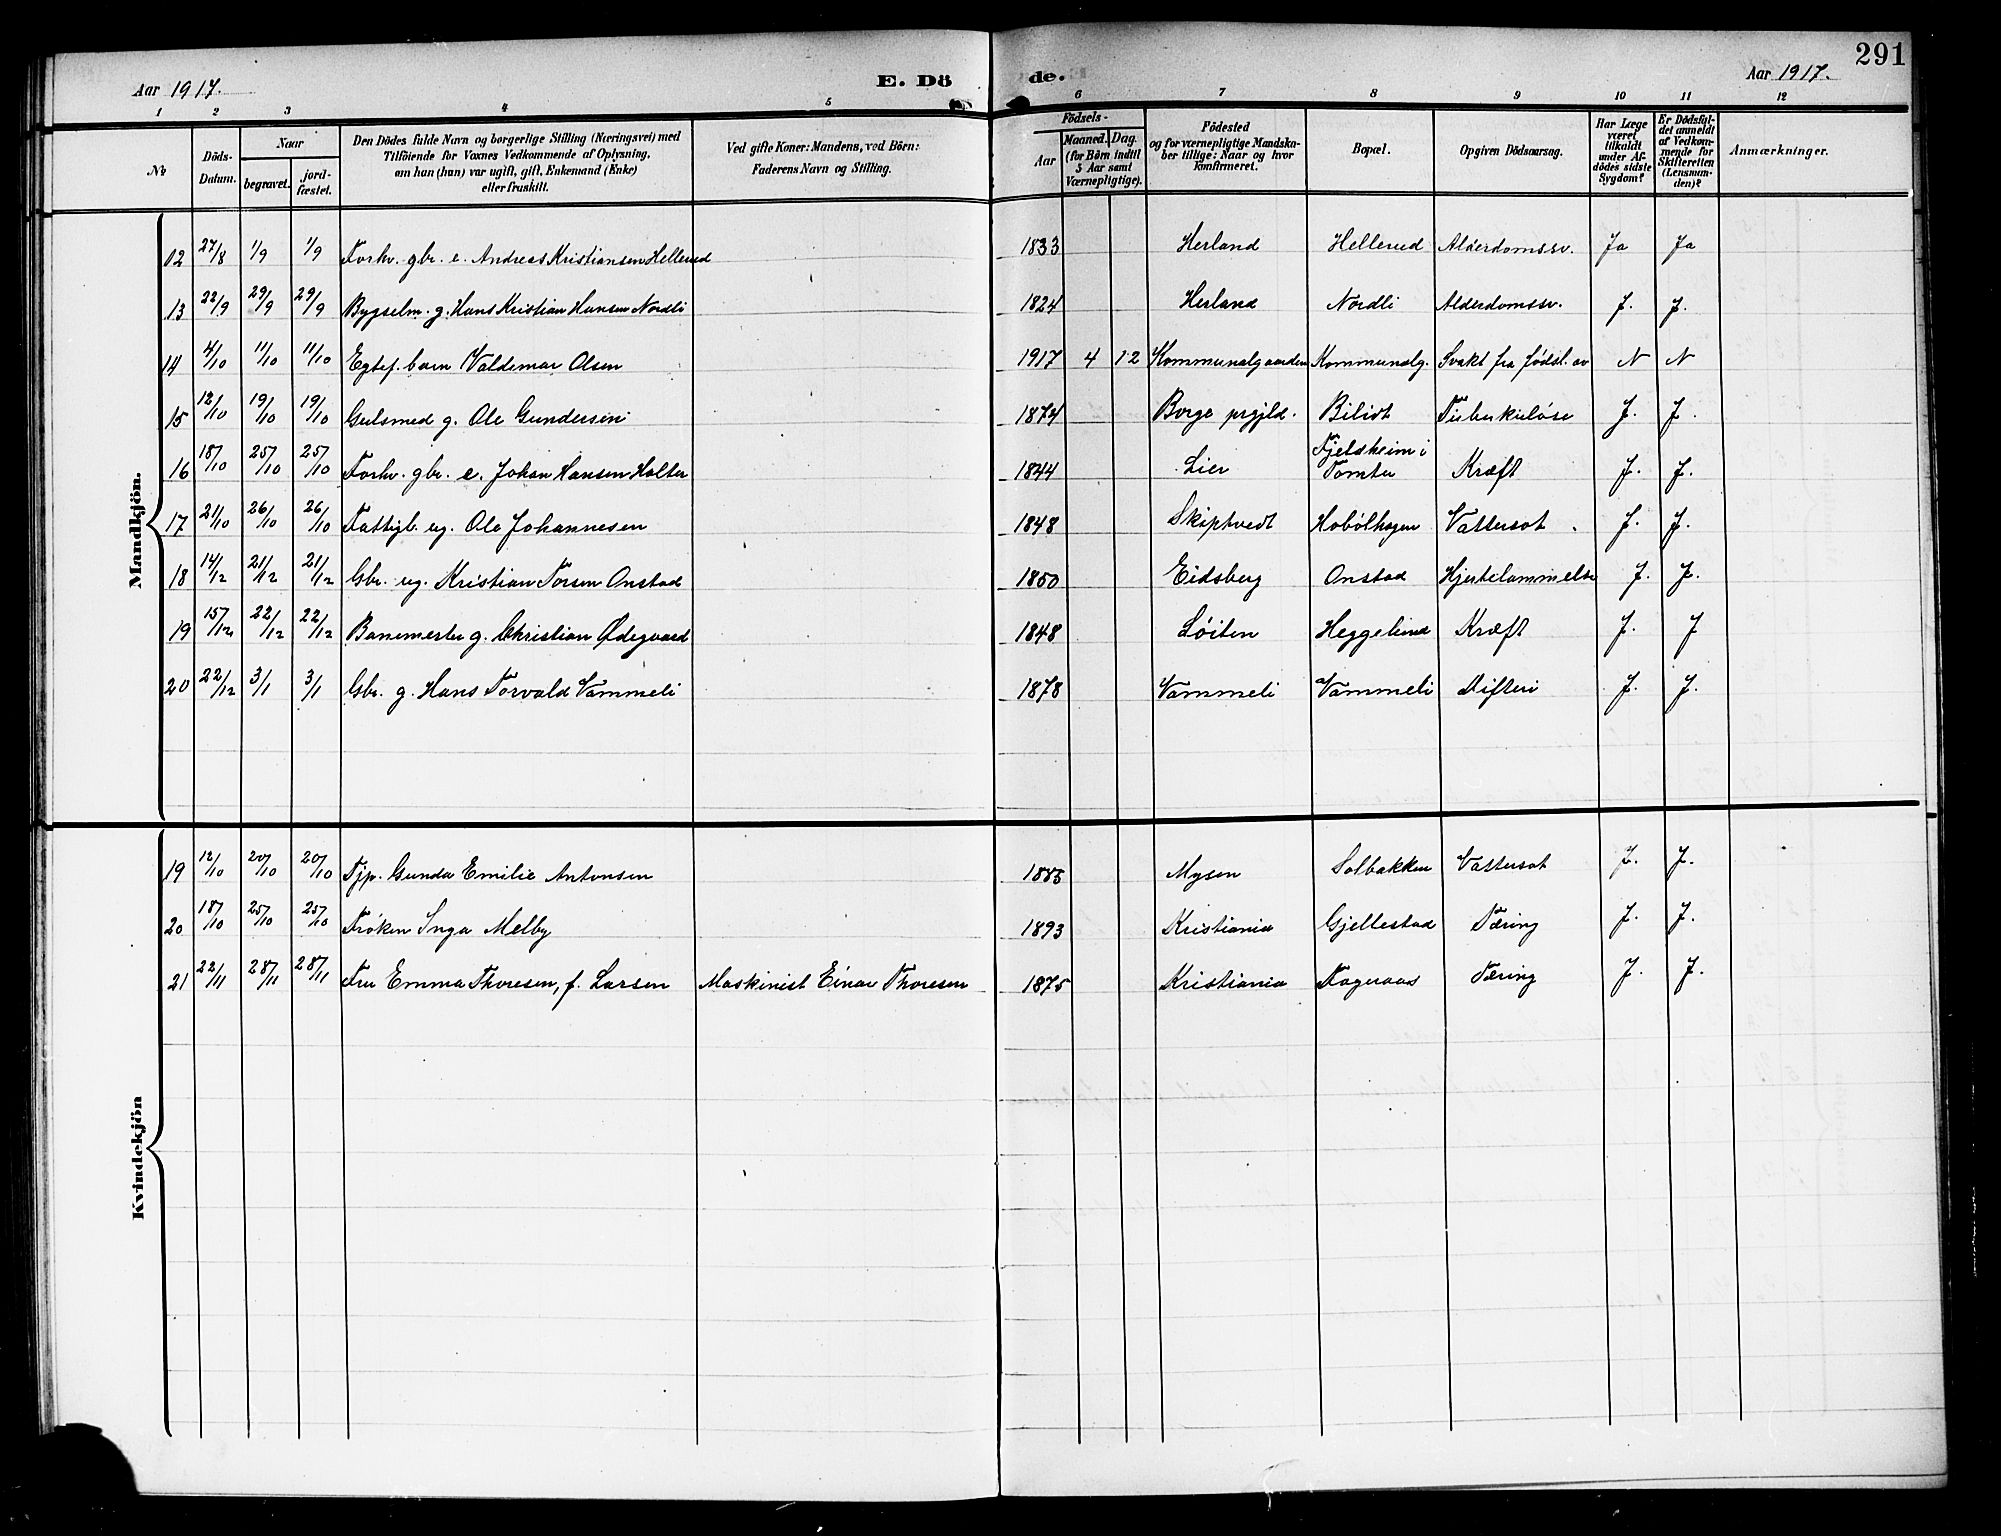 291
Aar 1917. E. Dö de. Aar 1917.
1 2 3 4 5 6 7 8 9 10 11 12
No
Döds-Datum.
Naar
begravet.
jord-fæstet.
Den Dödes fulde Navn og borgerlige Stilling (Næringsvei) med
Tilföiende for Voxnes Vedkommende af Oplysning,
om han (hun) var ugift, gift, Enkemand (Enke)
eller fraskilt.
Ved gifte Koner: Mandens, ved Börn:
Faderens Navn og Stilling.
Födsels-
Aar
Maaned. Dag.
(for Börn indtil
5 Aar samt
Værnepligtige).
Födested
og for værnepligtige Mandska-
ber tillige: Naar og hvor
konfirmeret.
Bopæl.
Opgiven Dödsaarsag.
Har Læge
været
tilkaldt
under Af-
dödes sidste
Sygdom?
Er Dödsfal-
det anmeldt
af Vedkom-
mende for
Skifteretten
(Lensman-
den)?
Anmærkninger.
Mandkjön.
12 27/8 1/9 1/9 Forhv. gbr. e. Andreas Kristiansen Hellerud 1833 Herland Hellerud Alderdomssv. Ja Ja
13 22/9 29/9 29/9 Bygselm. g. Hans Kristian Hansen Nordli 1824 Herland Nordli Alderdomssv. J. J.
14 4/10 11/10 11/10 Egtef. barn Valdemar Olsen 1917 4 12 Kommunalgaarden Kommunalg. Svakt fra fødsl. av N N
15 12/10 19/10 19/10 Gulsmed g. Ole Gundersen 1874 Borge prgjld. Bilidt Tuberkuløse J. J.
16 18/10 25/10 25/10 Forhv. gbr. e. Johan Hansen Holter 1844 Lier Fjeldsheim i Tomter Kræft J. J.
17 21/10 26/10 26/10 Fattigl. ug. Ole Johannesen 1848 Skiptvedt Hobølhagen Vattersot J. J.
18 14/12 21/12 21/12 Gbr. ug. Kristian Torsen Onstad 1850 Eidsberg Onstad Hjertelammelse J. J.
19 15/12 22/12 22/12 Banemester g. Christian Ødegaard 1848 Løiten Heggelund Kræft J. J
20 22/12 3/1 3/1 Gbr. g. Hans Torvald Vammeli 1878 Vammeli Vammeli Difteri J. J.
Kvindekjön
19 12/10 20/10 20/10 Tjp. Gunda Emilie Antonsen 1885 Mysen Solbakken Vattersot J. J.
20 18/10 25/10 25/10 Frøken Inga Melby 1893 Kristiania Gjellestad Tæring J. J.
21 22/11 28/11 28/11 Fru Emma Thoresen, f. Larsen Maskinist Einar Thoresen 1875 Kristiania Fageraas Tæring J. J.